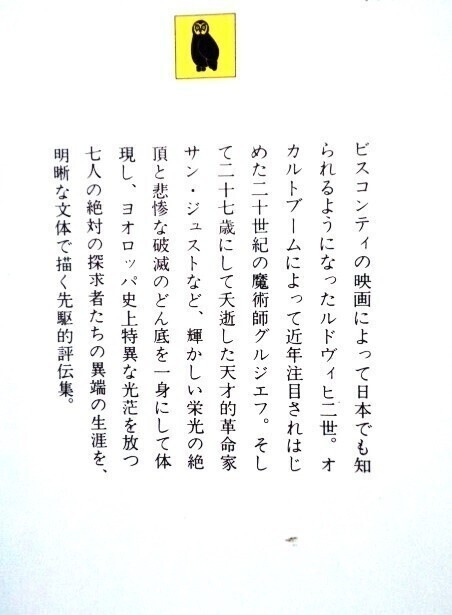 ビスコンティの映画によって日本でも知
られるようになったルドヴィヒ二世。オ
カルトブームによって近年注目されはじ
めた二十世紀の魔術師グルジエフ。そし
て二十七歳にして夭逝した天才的革命家
サン・ジュストなど、輝かしい栄光の絶
頂と悲惨な破滅のどん底を一身にして体
現し、ヨオロッパ史上特異な光茫を放つ
七人の絶対の探求者たちの異端の生涯を、
明晰な文体で描く先駆的評伝集。